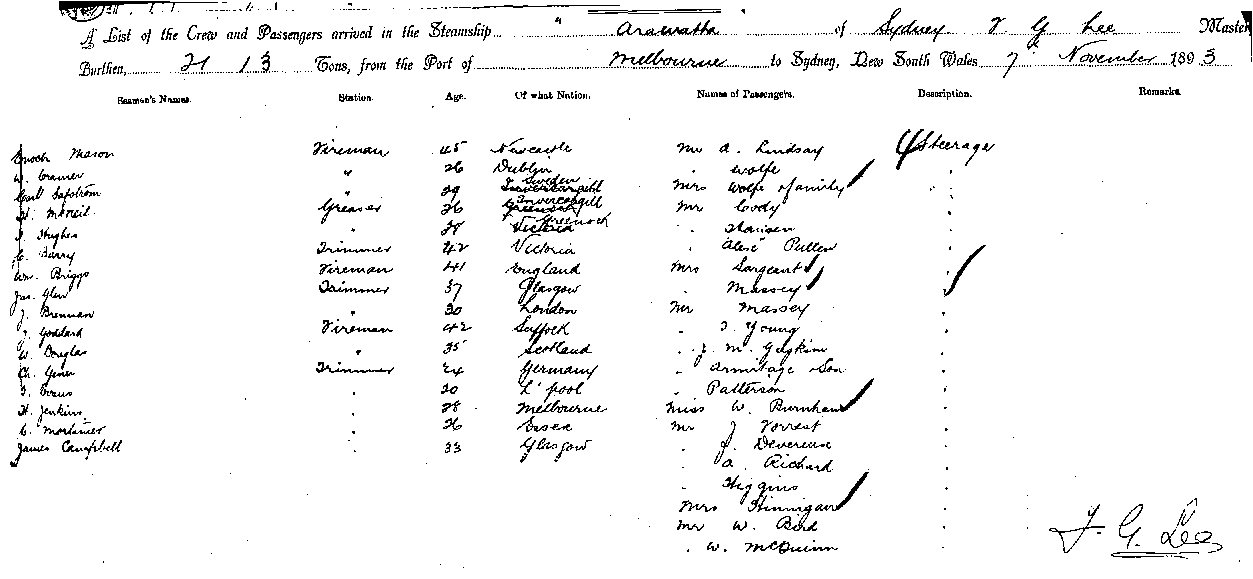 A List of the Crew and Passengers arrived in the Steamship " Arawatta of Sydney J G Lee Master
Burthen, 2113 Tons, from the Port of Melbourne to Sydney, New South Wales 7 November 1893
Seaman's Names. Station. Age. Of what Nation. Names of Passengers. Description. Remarks
Enoch Mason Fireman 45 Newcastle Mr A. Lindsay Steerage
W. Cramer " 26 Dublin . Wolfe
Carl Safström " 29 Sweden Mrs Wolfe & family
H. McNeil Greaser 26 Invercargill Mr Cody
J. Hughes . 28 Greenock . Hansen
C. Barry Trimmer 42 Victoria . Alex Pullen
Wm. Briggs Fireman 41 England Mrs Sargeant
Jas. Glen Trimmer 37 Glasgow . Massey
J. Brennan . 30 London Mr Massey
Goddard Fireman 42 Suffock . J. Young
W. Douglas " 35 Scotland . J. M.
Ch. Trimmer 24 Germany . Armitage & Son
J. Evans . 20 L'pool . Patterson
H. Jenkins . 28 Melbourne Miss W. Burnham
C. Mortimer . 26 Essex Mr J Forrest
James Campbell . 33 Glasgow . J. Devereux
. A. Richard
. Higgins
Mrs Hinnigan
Mr W. Bird
. W. McGuinn
J. G. Lee